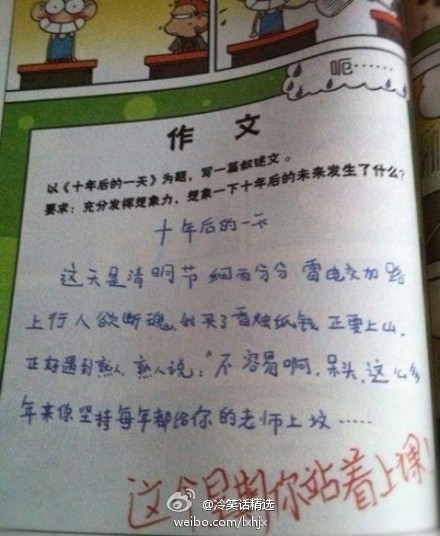 呃……
作 文
以《十年后的一天》为题，写一篇叙述文。
要求：充分发挥想象力，想象一下十年后的未来发生了什么？
十年后的一天
这天是清明节 细雨分分 雷电交加 路
上行人欲断魂，我买了香烛纸钱 正要上山，
正好遇到熟人，熟人说："不容易啊，呆头，这么多
年来你坚持每年都给你的老师上坟……
这个星期你站着上课！
@冷笑话精选
weibo.com/lxhjx